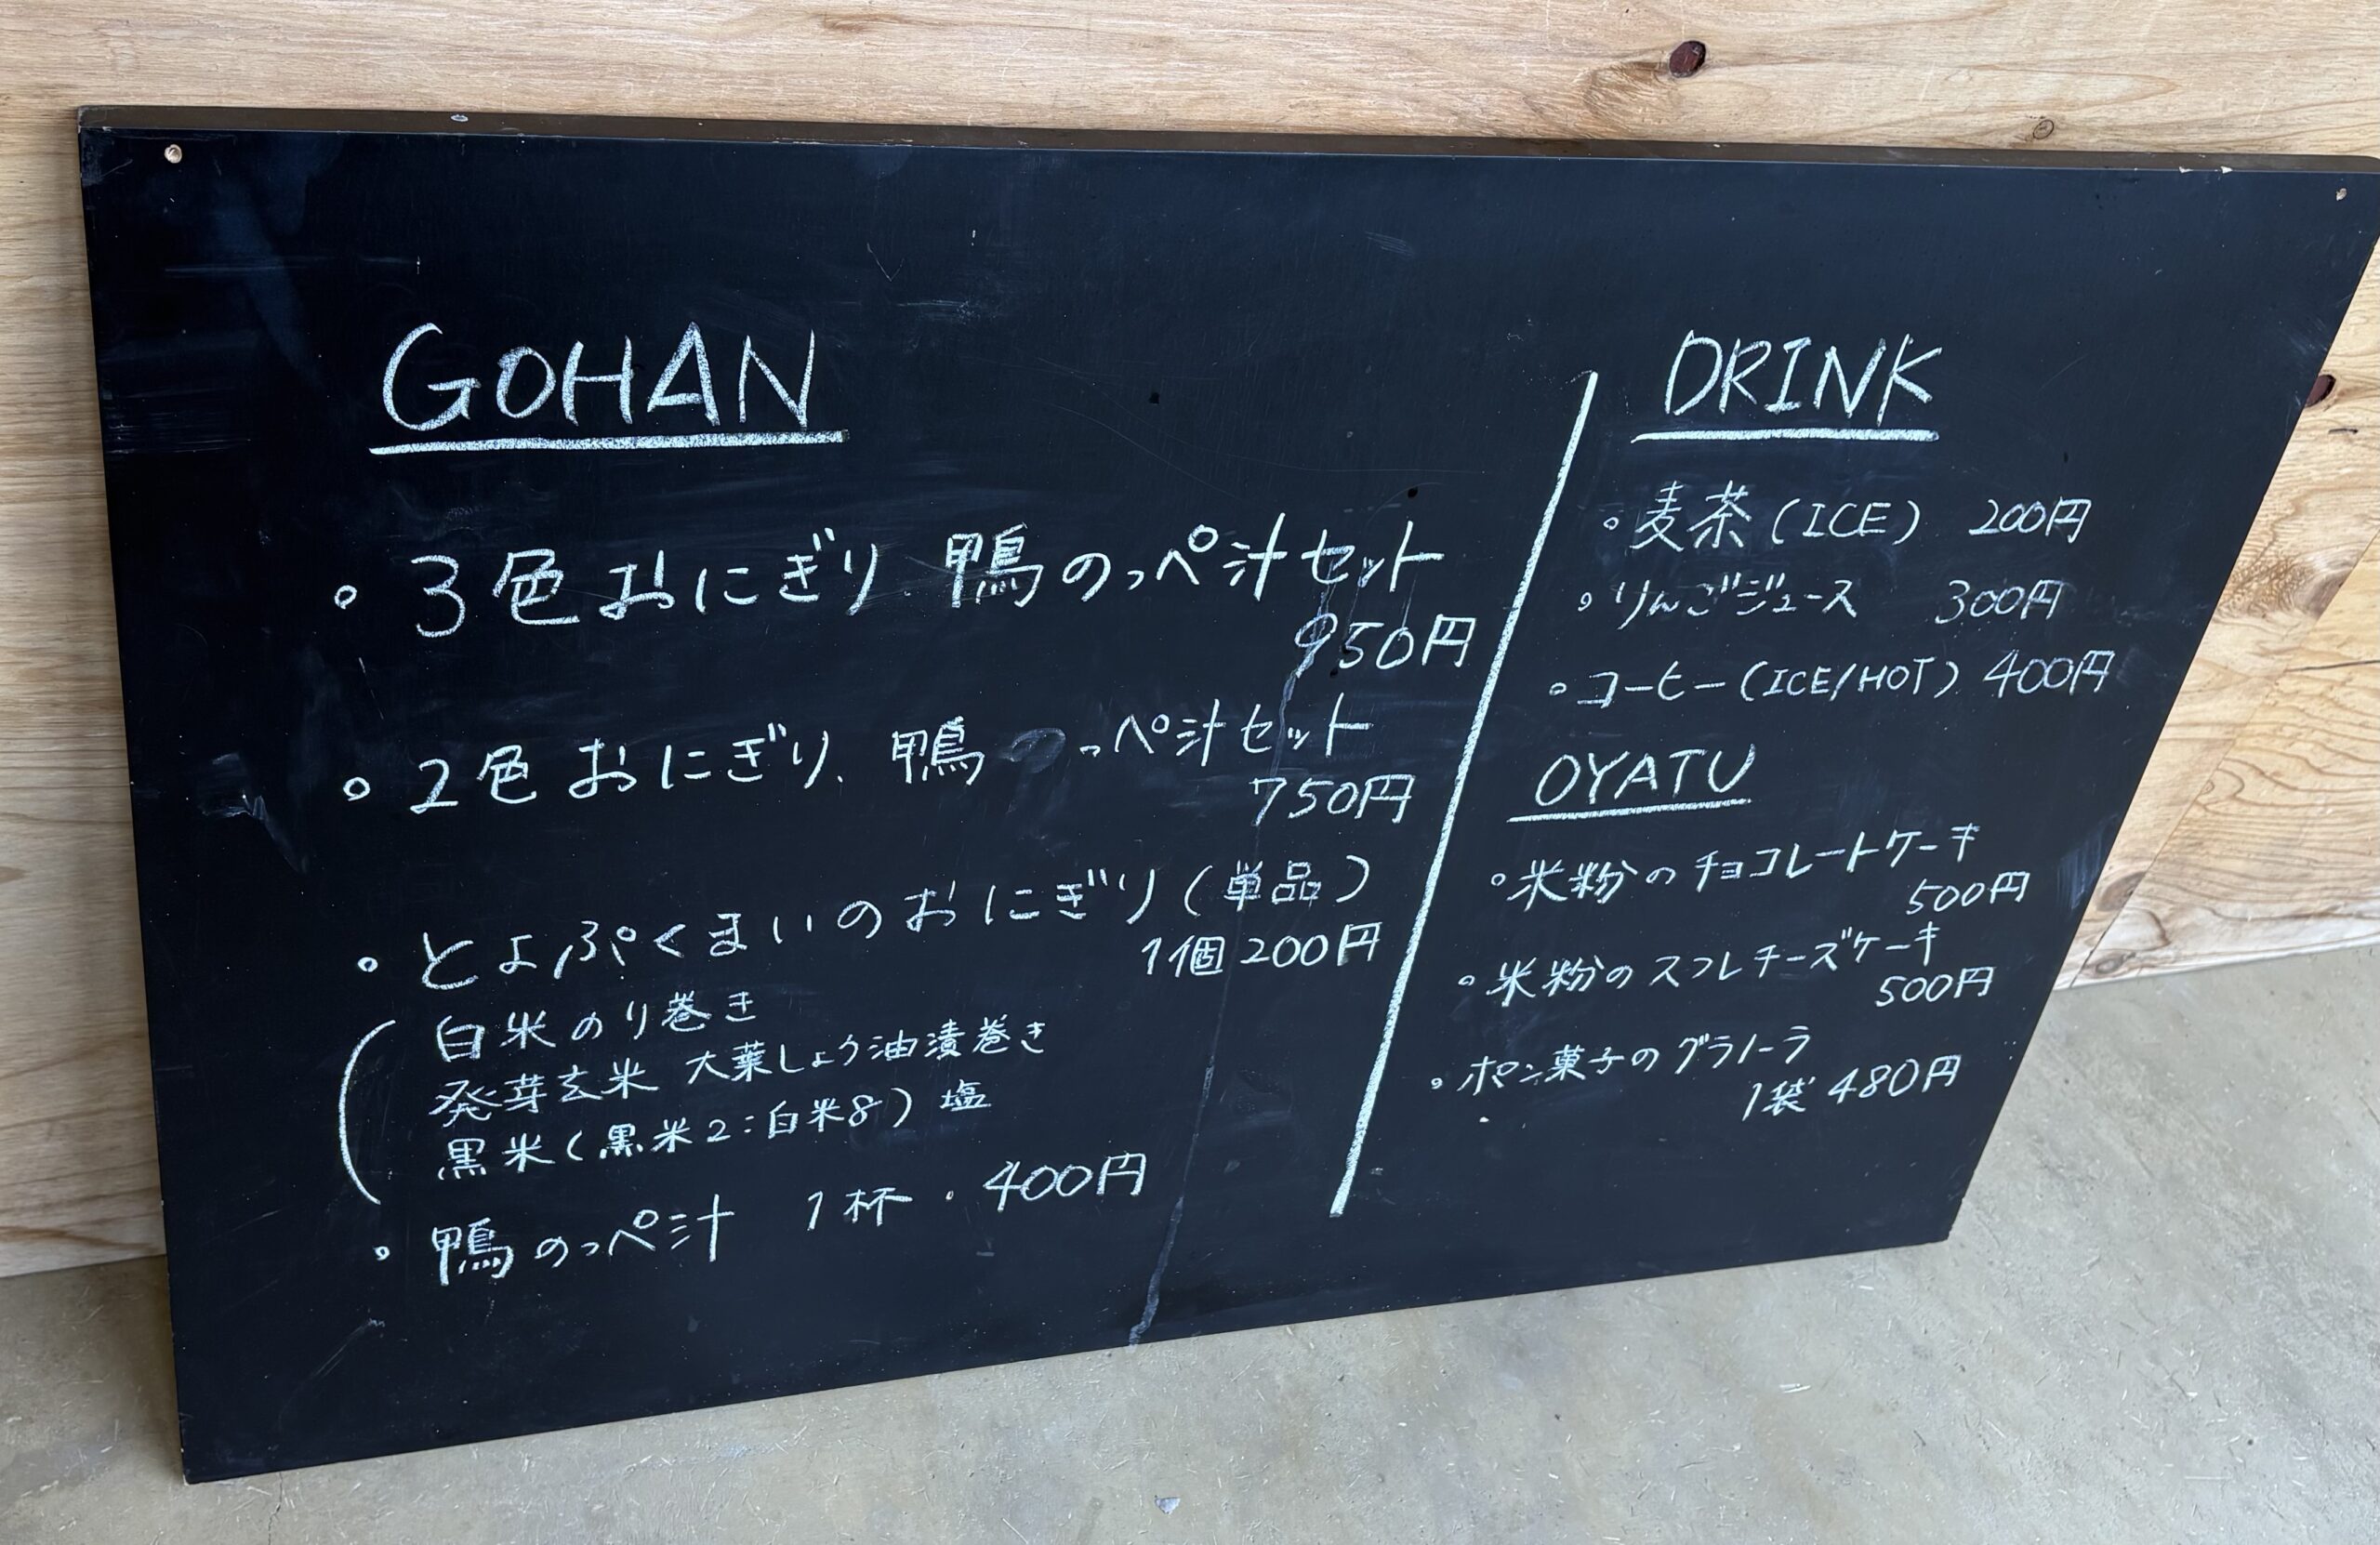 GOHAN
・3色おにぎり、鴨のっぺ汁セット
950円
・2色おにぎり、鴨のっぺ汁セット
750円
・とよぷくまいのおにぎり(単品)
1個200円
(白米のり巻き
発芽玄米 大葉しょう油漬巻き
黒米(黒米2:白米8)塩
・鴨のっぺ汁 1杯・400円
DRINK
・麦茶(ICE) 200円
・りんごジュース 300円
・コーヒー(ICE/HOT) 400円
OYATU
・米粉のチョコレートケーキ
500円
・米粉のスフレチーズケーキ
500円
・ポン菓子のグラノーラ
1袋 480円